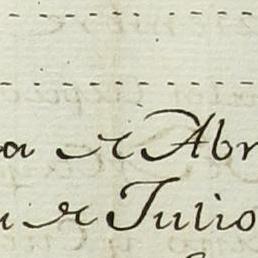 a de Abr
u de Julio